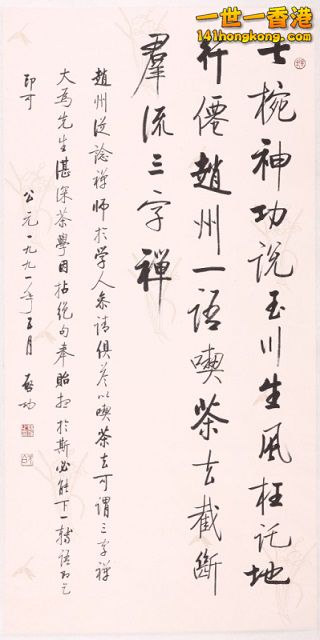 一世一香港
141hongkong.com
七椀神功說玉川生風枉託地
行僊趙州一語喫茶去截斷
羣流三字禪
趙州從諗禪師於学人叅請俱答以喫茶去可謂三字禪
大為先生湛深茶學因拈絕句奉貽想於斯必能下一轉語即乞
印可
公元一九九一年五月 啟功